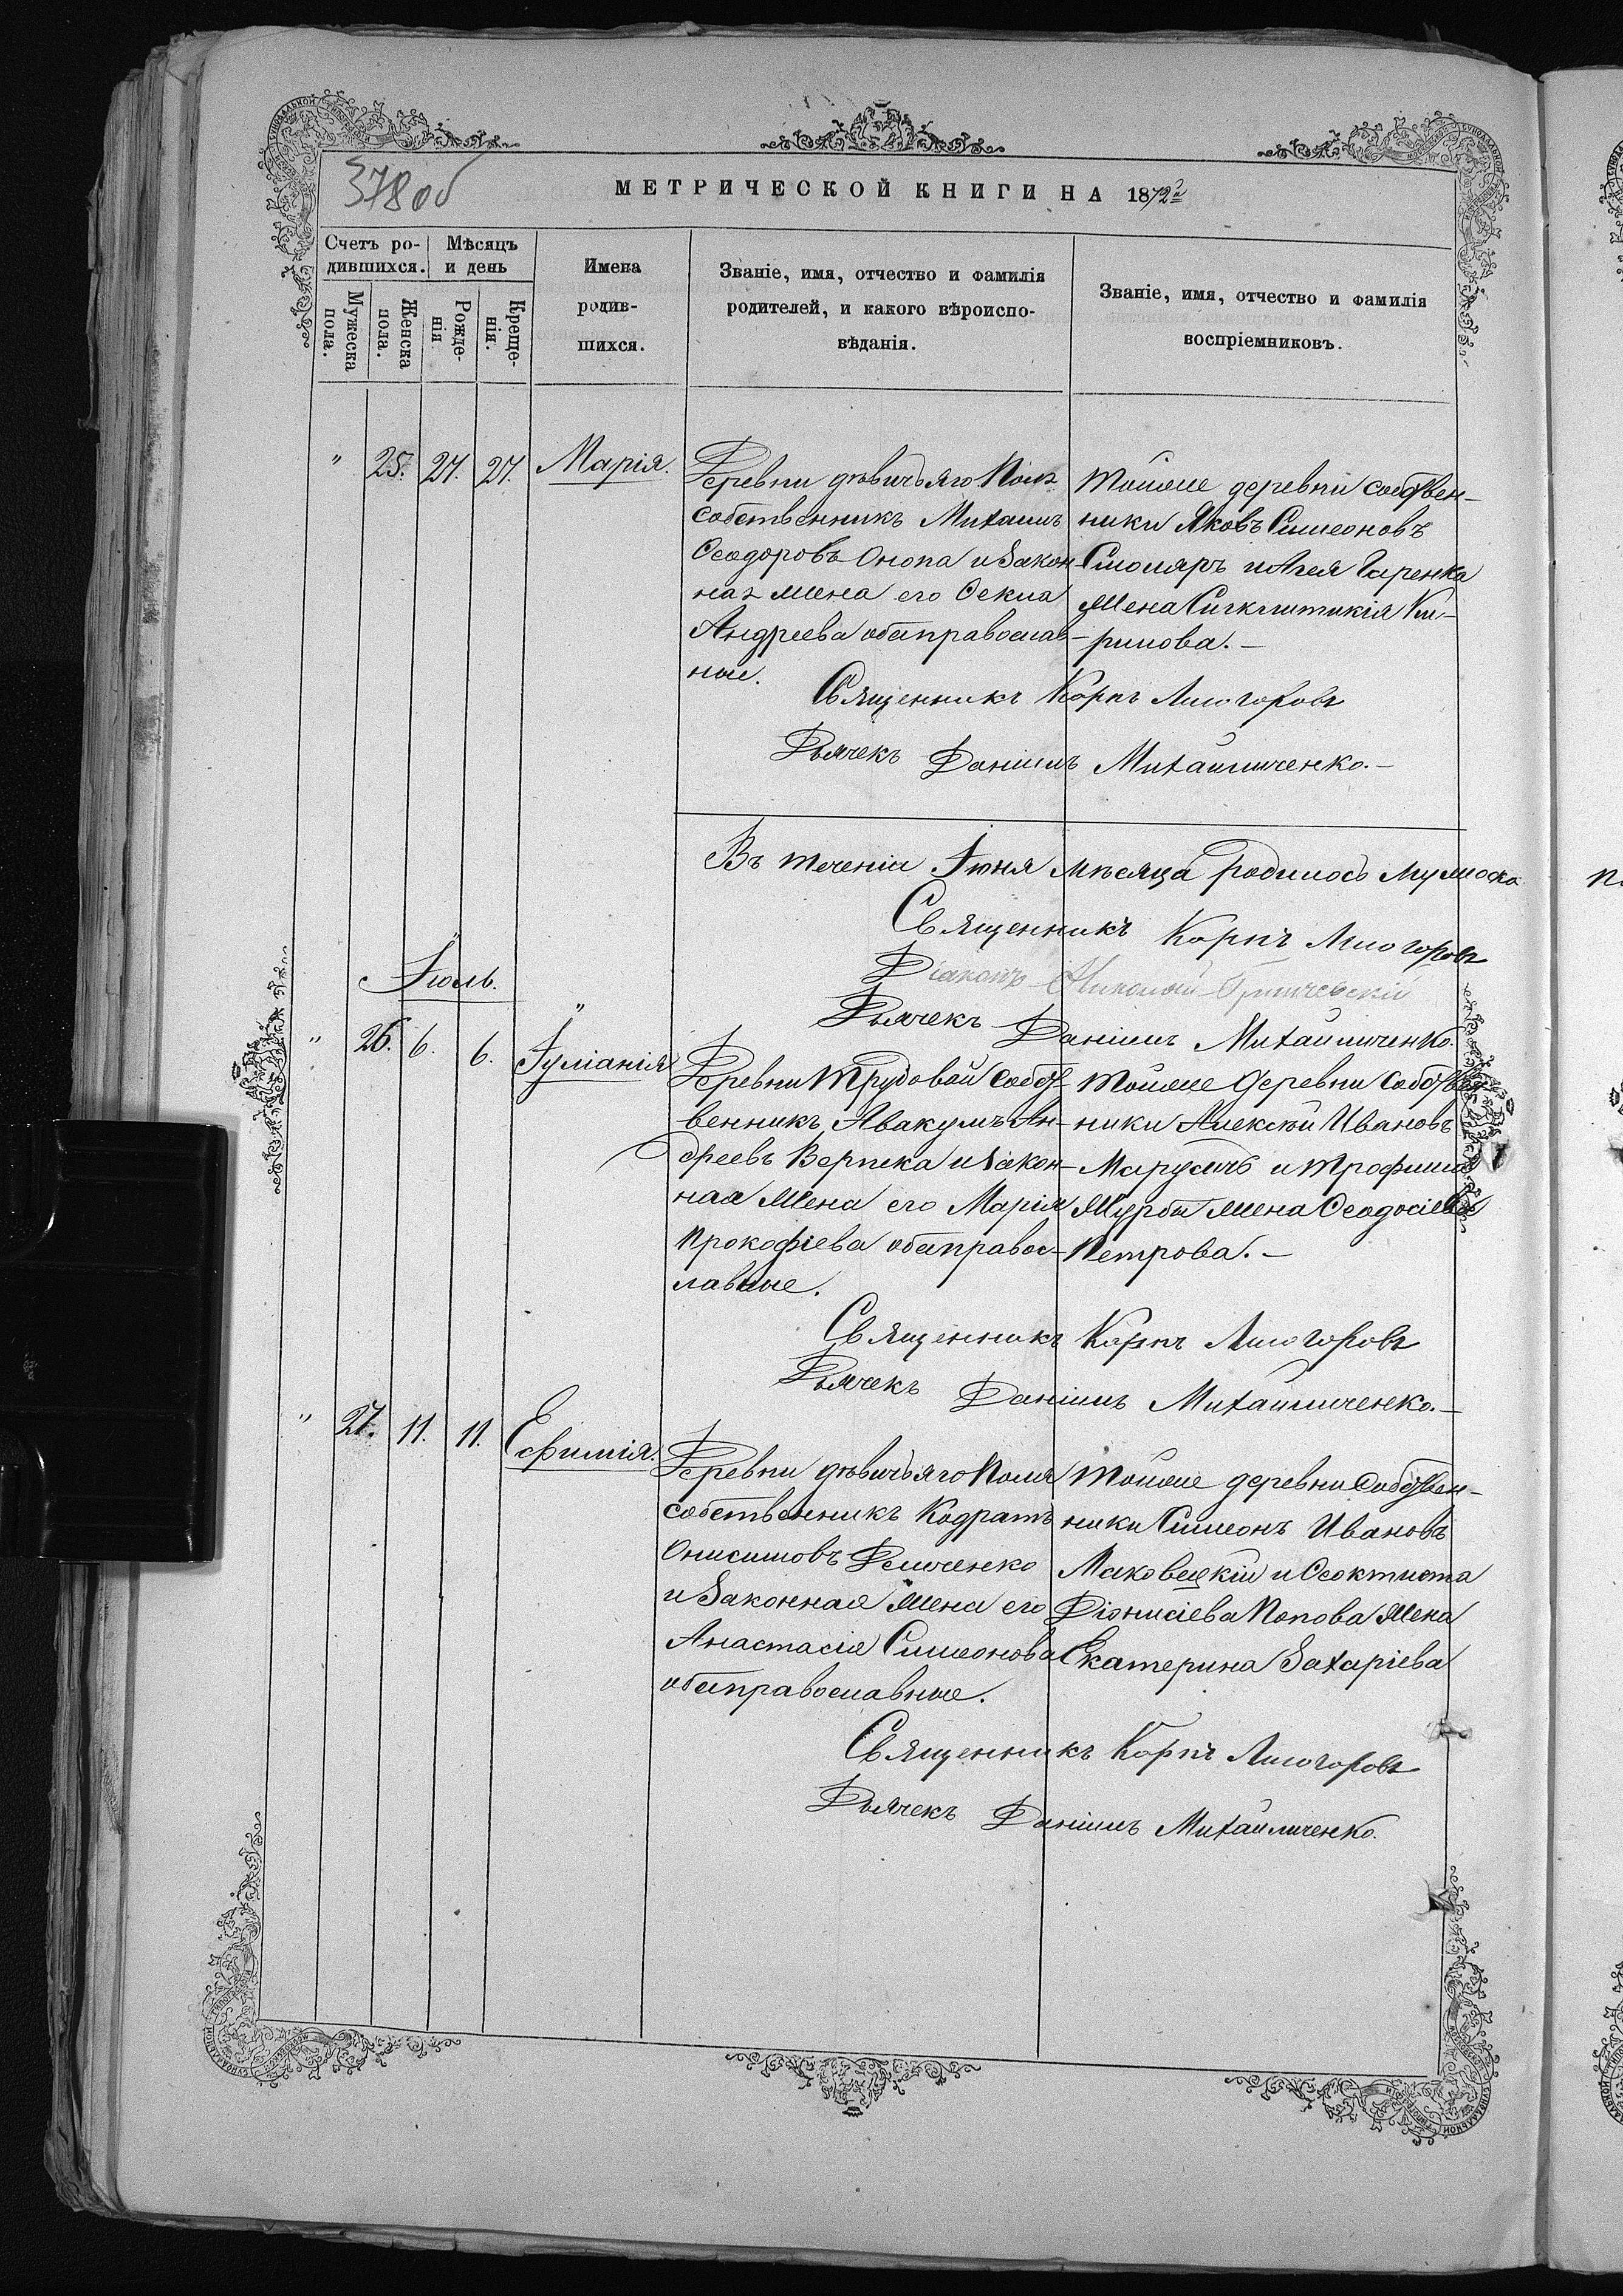 378 об
МЕТРИЧЕСКОЙ КНИГИ НА 1872й
Счетъ ро-
дившихся.
Мѣсяцъ
и день
Мужеска
пола.
Женска
пола.
Рожде-
нія
Креще-
нія.
Имена
родив-
шихся.
Званіе, имя, отчество и фамилія
родителей, и какого вѣроиспо-
вѣданія.
Званіе, имя, отчество и фамилія
воспріемниковъ.
" 25. 27. 27. Марія.
Деревни дѣвичьяго Поля
собственникъ Михаилъ
Ѳеодоровъ Онопа и Закон-
ная жена его Ѳекла
Андреева оба православ-
ные.
Тойже деревни собствен-
ники Яковъ Симеоновъ
Столяръ и Агея Гаренка
жена Ки-
рилова.-
Священникъ Корпъ Лисогоровъ
Дьячекъ Даніилъ Михайличенко.-
Въ теченіи Іюня мѣсяца родилось мужеска
Священникъ Корпъ Лисогоровъ
Діаконъ Николай
Дьячекъ Даніилъ Михайличенко.
Іюль.
" 26. 6. 6. Іуліанія
Деревни Трудовой собст-
венникъ Авакумъ Ан-
дреевъ Верпека и Закон-
ная жена его Марія
Прокофіева оба правос-
лавные.
Тойже Деревни Собствен-
ники Алексѣй Ивановъ
Марусичъ и Трофима
Журбы жена Ѳеодосія
Петрова.-
Священникъ Корпъ Лисогоровъ
Дьячекъ Даніилъ Михайличенко.-
" 27. 11. 11. Ефимія.
Деревни дѣвичьяго Поля
собственникъ Кодратъ
Онисимовъ Демченко
и Законная жена его
Анастасія Симеонова
оба православные.
Тойже деревни Собствен-
ники Симеонъ Ивановъ
Маковецкій и Ѳеоктиста
Діонисіева Попова жена
Екатерина Захаріева
Священникъ Корпъ Лисогоровъ
Дьячекъ Даніилъ Михайличенко.